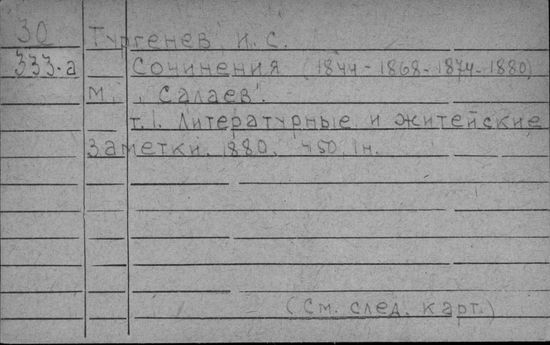 30 Тургенев И. С.
333-а Сочинения (1844-1868-1874-1880)
М., "Салаев".
т. 1. Литературные и житейские
заметки. 1880. 450, 1н.
(См. след. карт.)